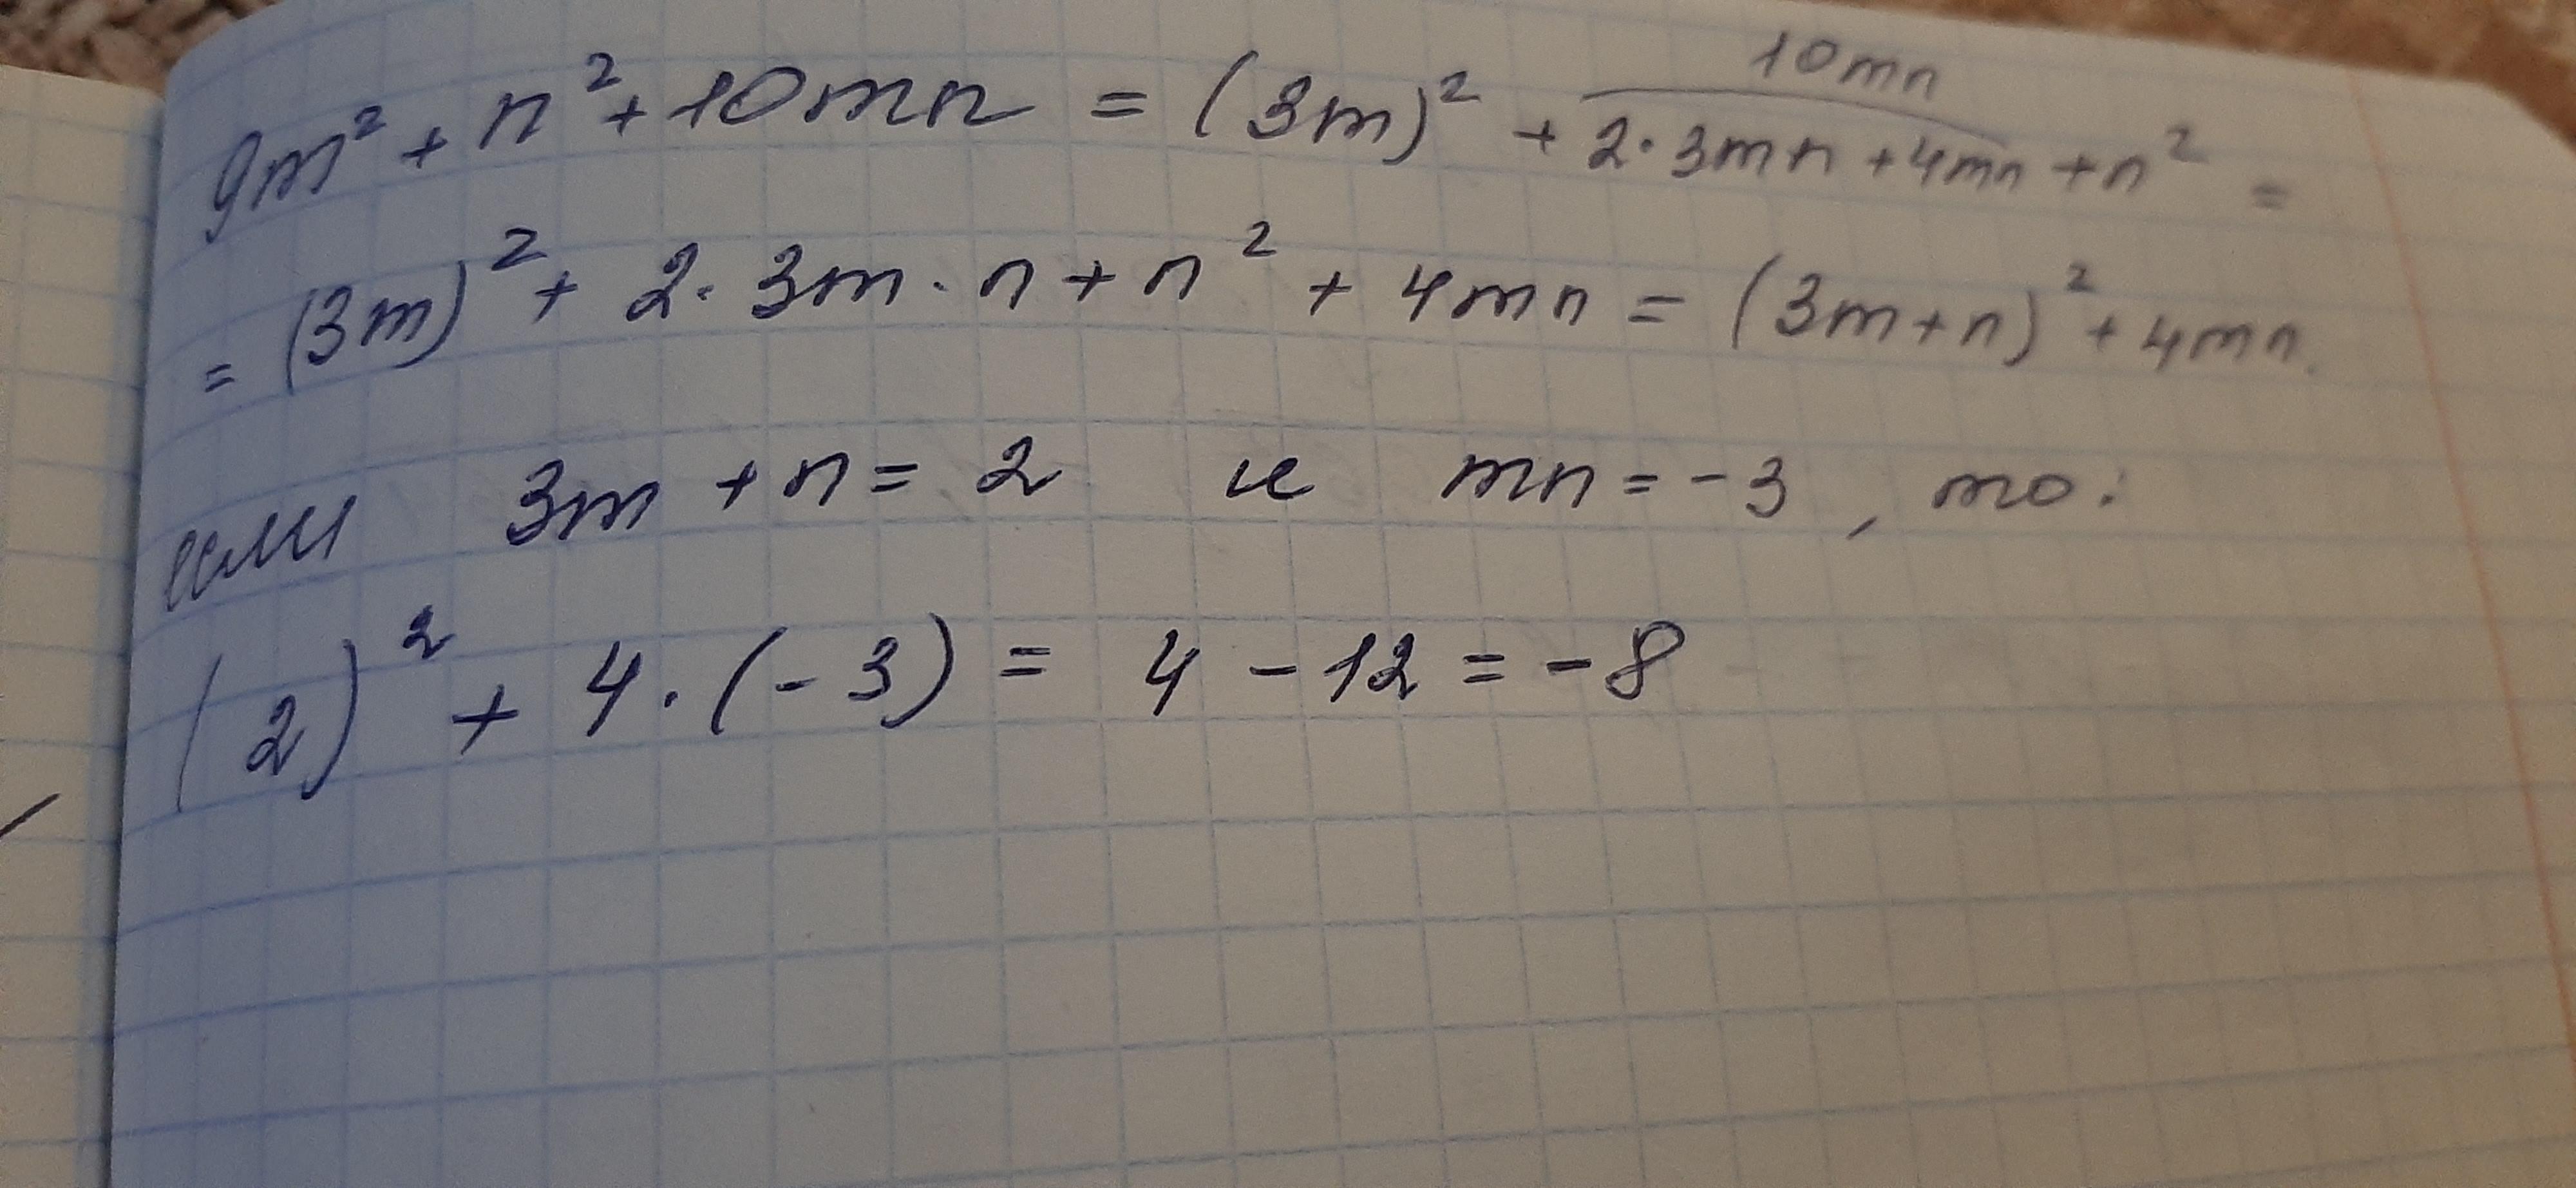 9m² + n² + 10mn = (3m)² + 2·3mn + 4mn + n² =
10mn
= (3m)² + 2·3m·n + n² + 4mn = (3m+n)² + 4mn.
если 3m + n = 2 и mn = -3, то:
(2)² + 4·(-3) = 4 - 12 = -8